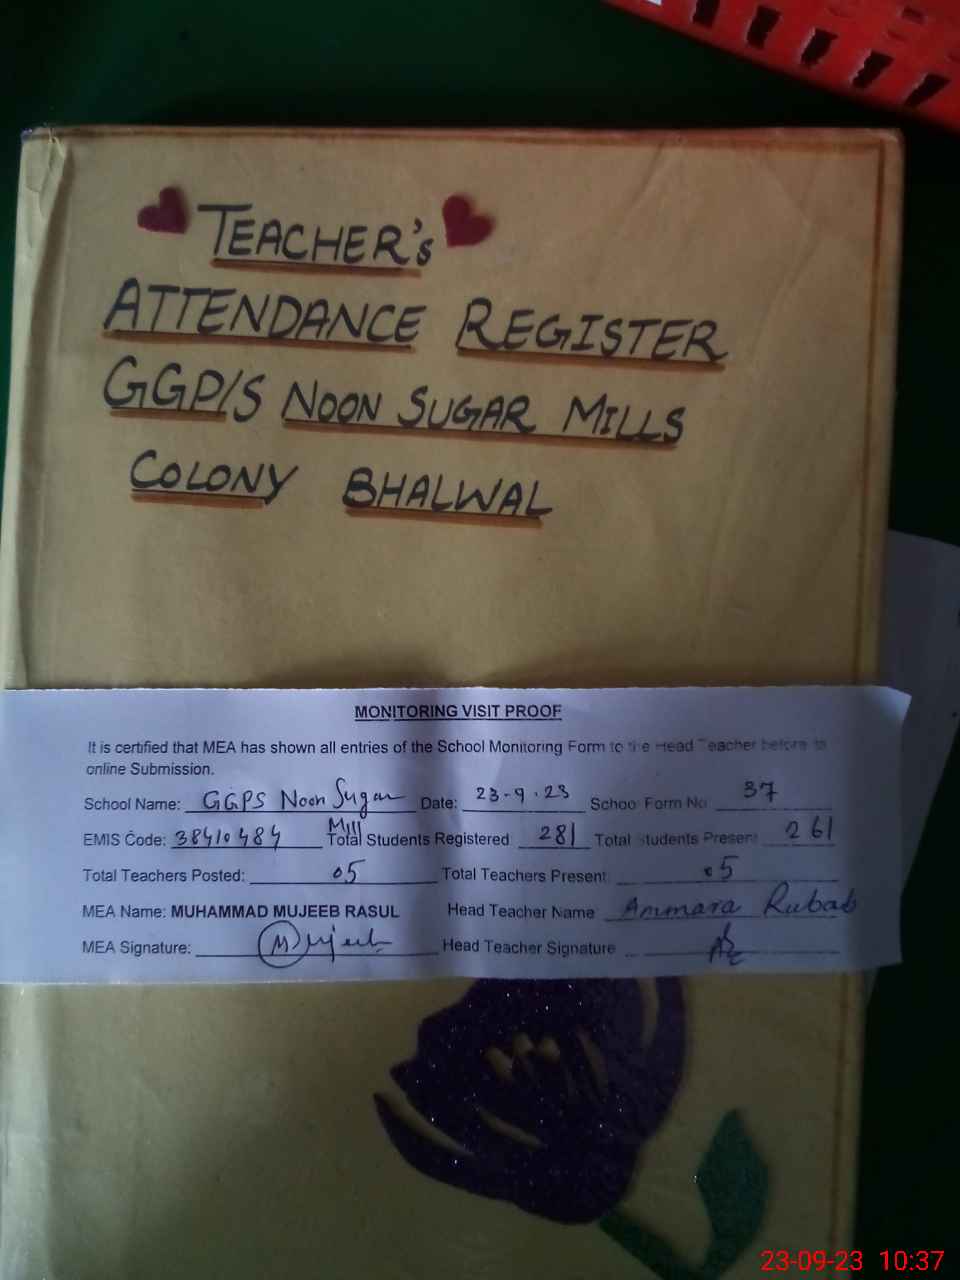 TEACHER's
ATTENDANCE REGISTER
GGP/S NOON SUGAR MILLS
COLONY BHALWAL
MONITORING VISIT PROOF
It is certified that MEA has shown all entries of the School Monitoring Form to the Head Teacher before to
online Submission.
School Name: GGPS Noon Sugar Mill Date: 23-9-23 School Form No 37
EMIS Code: 38410484 Total Students Registered 281 Total Students Present 261
Total Teachers Posted: 05 Total Teachers Present: 05
MEA Name: MUHAMMAD MUJEEB RASUL Head Teacher Name Ammara Rubab
MEA Signature: Mujeeb Head Teacher Signature
23-09-23 10:37